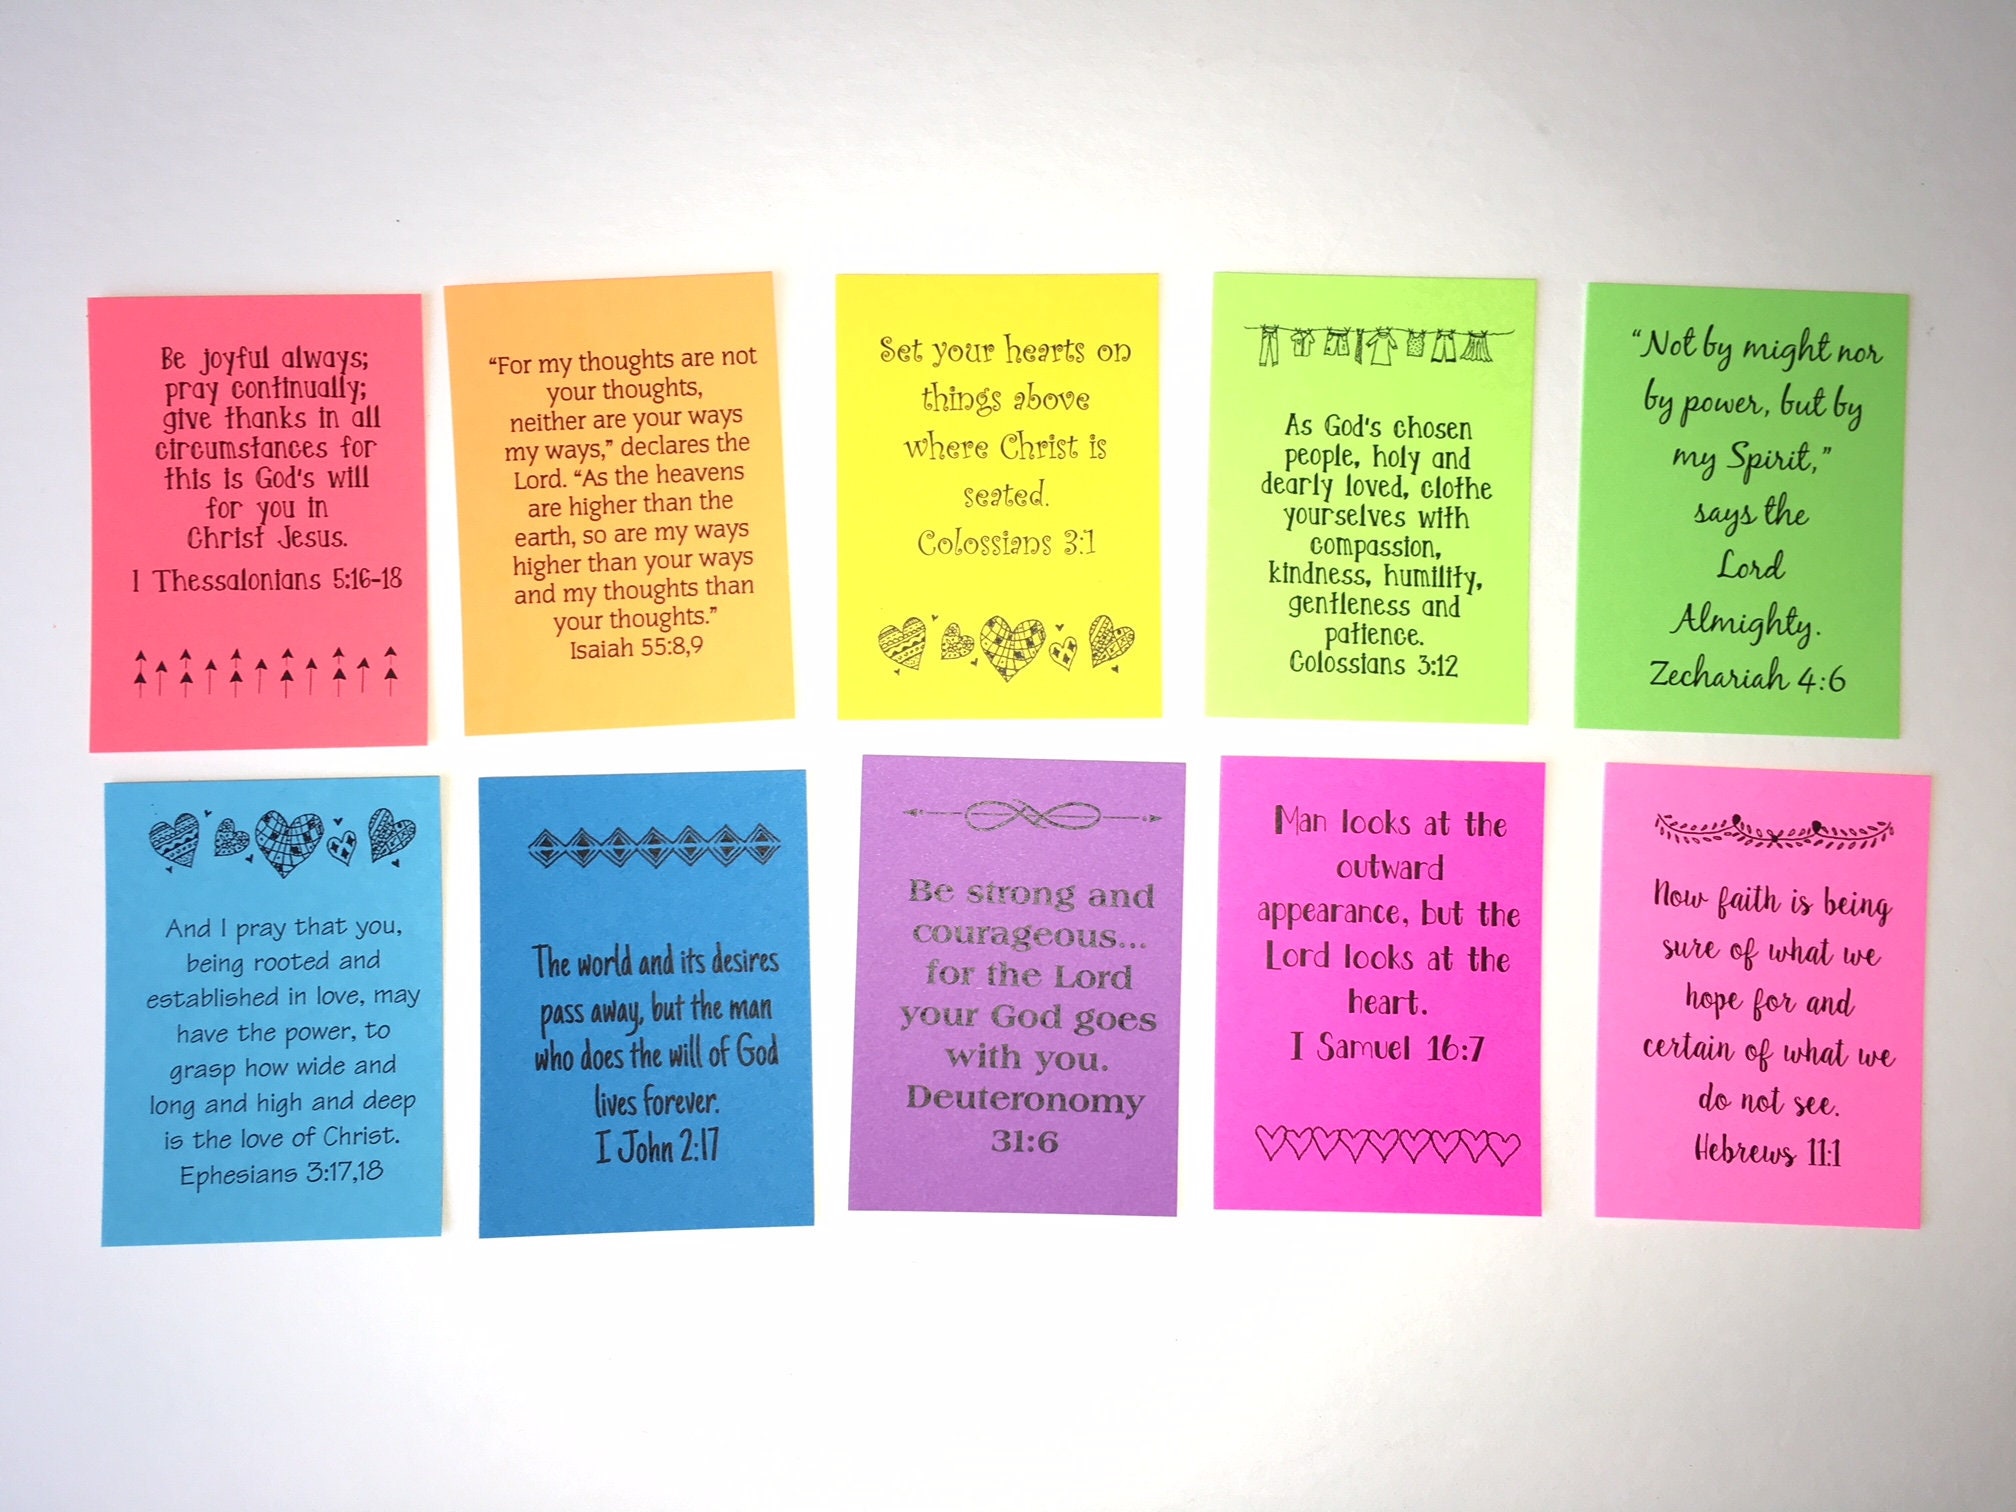 Be joyful always;
pray continually;
give thanks in all
circumstances for
this is God's will
for you in
Christ Jesus.
1 Thessalonians 5:16-18
“For my thoughts are not
your thoughts,
neither are your ways
my ways,” declares the
Lord. “As the heavens
are higher than the
earth, so are my ways
higher than your ways
and my thoughts than
your thoughts.”
Isaiah 55:8,9
Set your hearts on
things above
where Christ is
seated.
Colossians 3:1
As God's chosen
people, holy and
dearly loved, clothe
yourselves with
compassion,
kindness, humility,
gentleness and
patience.
Colossians 3:12
“Not by might nor
by power, but by
my Spirit,”
says the
Lord
Almighty.
Zechariah 4:6
And I pray that you,
being rooted and
established in love, may
have the power, to
grasp how wide and
long and high and deep
is the love of Christ.
Ephesians 3:17,18
The world and its desires
pass away, but the man
who does the will of God
lives forever.
I John 2:17
Be strong and
courageous...
for the Lord
your God goes
with you.
Deuteronomy
31:6
Man looks at the
outward
appearance, but the
Lord looks at the
heart.
I Samuel 16:7
Now faith is being
sure of what we
hope for and
certain of what we
do not see.
Hebrews 11:1